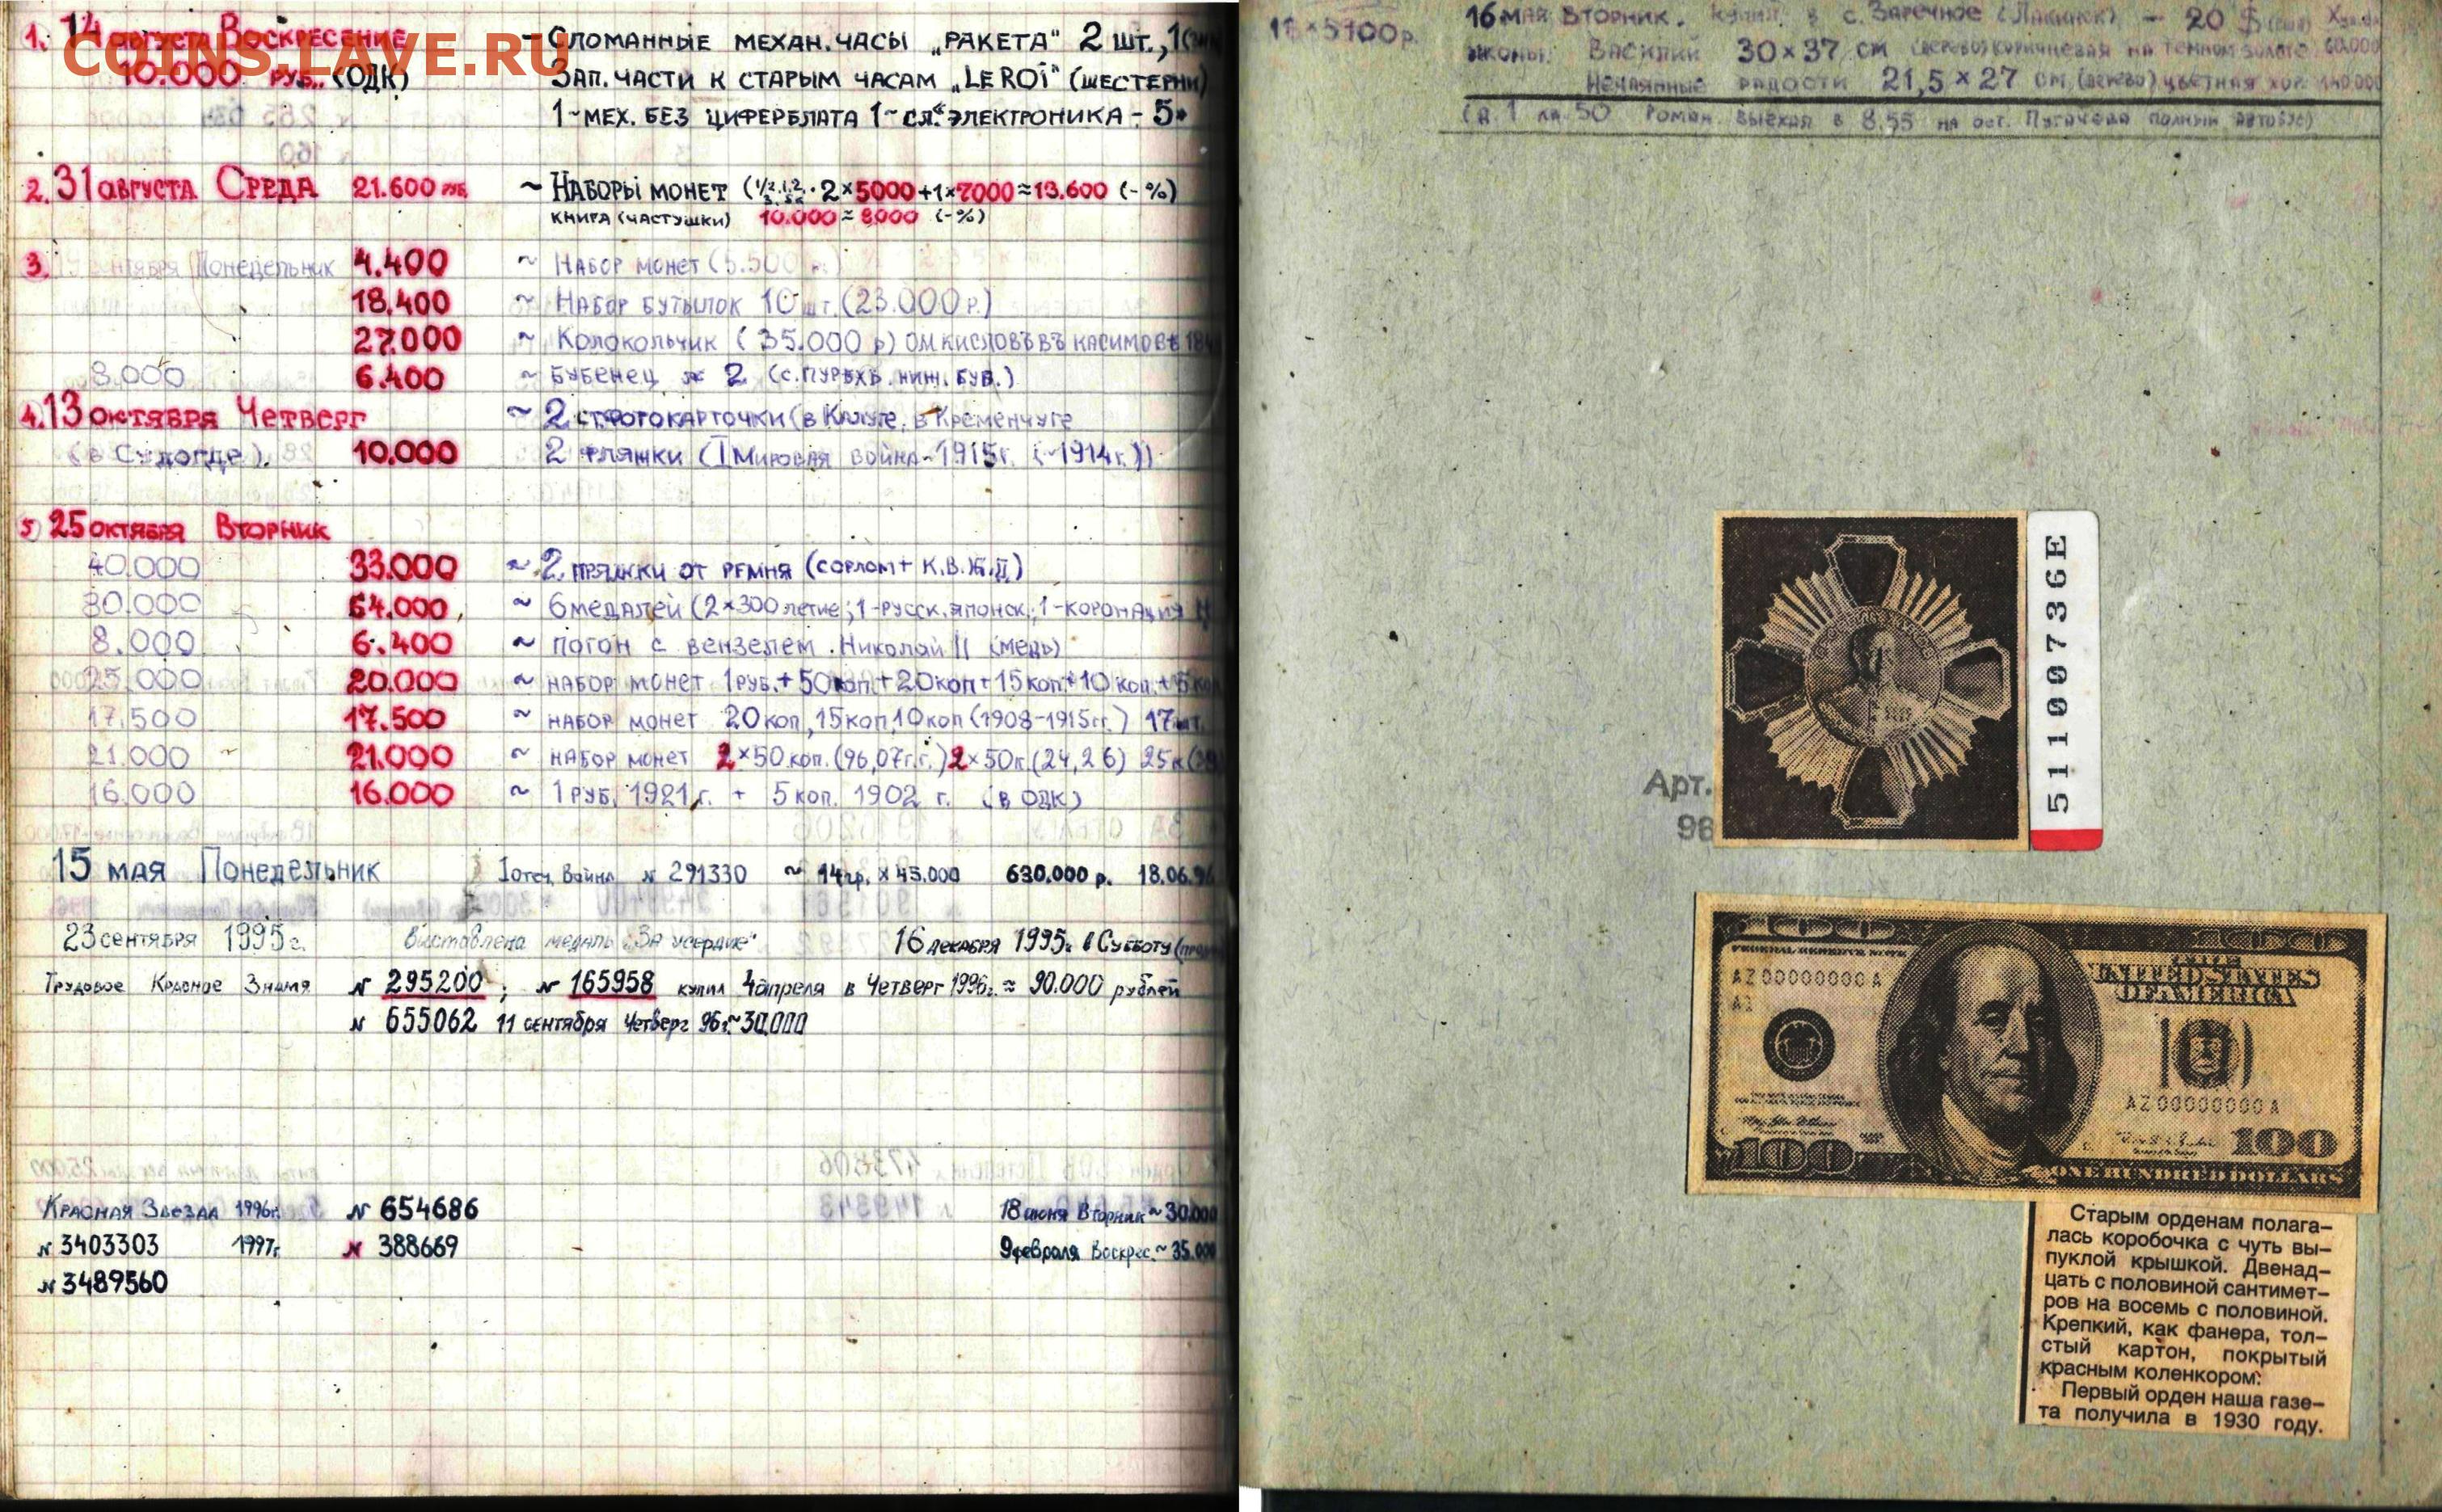 COINS.LAVE.RU
1. 14 августа Воскресение ~ Сломанные механ. часы „Ракета" 2 шт., 1
10.000 руб. (ОДК) Зап. части к старым часам „LE ROI" (шестерни)
1~мех. без циферблата 1~сл. "Электроника - 5"
2. 31 августа Среда 21.600 руб. ~ Наборы монет 2×5000+1×7000≈13.600 (-%)
книга (частушки) 10.000≈8000 (-%)
3. сентября Понедельник 4.400 ~ Набор монет (5.500 р.)
18.400 ~ Набор бутылок 10 шт. (23.000 р.)
27.000 ~ Колокольчик (35.000 р)
8.000 6.400 ~ Бубенец № 2 (с. Пурехъ. ниж. губ.)
4. 13 октября Четверг ~ 2 ст. фотокарточки (в Калуге, в Кременчуге
(в Судогде). 10.000 2 фляжки (I Мировая война ~ 1915г. (~1914г.))
5) 25 октября Вторник
40.000 33.000 ~ 2 пряжки от ремня (с орлом +
80.000 64.000 ~ 6 медалей (2×300 летие; 1-русск. японск.; 1-коронация
8.000 6.400 ~ погон с вензелем Николай II (медь)
25.000 20.000 ~ набор монет 1 руб. + 50 коп + 20 коп + 15 коп + 10 коп. + 5
17.500 17.500 ~ набор монет 20 коп, 15 коп, 10 коп (1908-1915гг.) 17 шт.
21.000 21.000 ~ набор монет 2×50 коп. (96,07г.г.) 2×50к. (24,26) 25к
16.000 16.000 ~ 1 руб. 1921 г. + 5 коп. 1902 г. (в ОДК)
15 мая Понедельник I отеч. Война № 291330 ~ 14гр. × 45.000 630.000 р. 18.06.96
23 сентября 1995г. Выставлена медаль „За усердие" 16 декабря 1995г. в Субботу
Трудовое Красное Знамя № 295200; № 165958 купил 4 апреля в Четверг 1996г. ≈ 90.000 рублей
№ 655062 11 сентября Четверг 96г. ~ 30.000
Красная Звезда 1996г. № 654686 18 июня Вторник ~ 30.000
№ 3403303 1997г. № 388669 9 февраля Воскрес. ~ 35.000
№ 3489560
×5100р.
16 мая Вторник. купил в с. Заречное – 20 $
иконы: Василий 30×37 см (дерево) коричневая на темном золоте 60.000
Нечаянные радости 21,5×27 см (дерево) цветная хор. 140.000
50 Роман выехал в 8.55 на ост. Пугачева полный автобус)
51100736E
Арт.
98
100 100
FEDERAL RESERVE NOTE
THE
UNITED STATES
OF AMERICA
AZ 00000000 A
A1
AZ 00000000 A
100 100
ONE HUNDRED DOLLARS
Старым орденам полага-
лась коробочка с чуть вы-
пуклой крышкой. Двенад-
цать с половиной сантимет-
ров на восемь с половиной.
Крепкий, как фанера, тол-
стый картон, покрытый
красным коленкором.
Первый орден наша газе-
та получила в 1930 году.